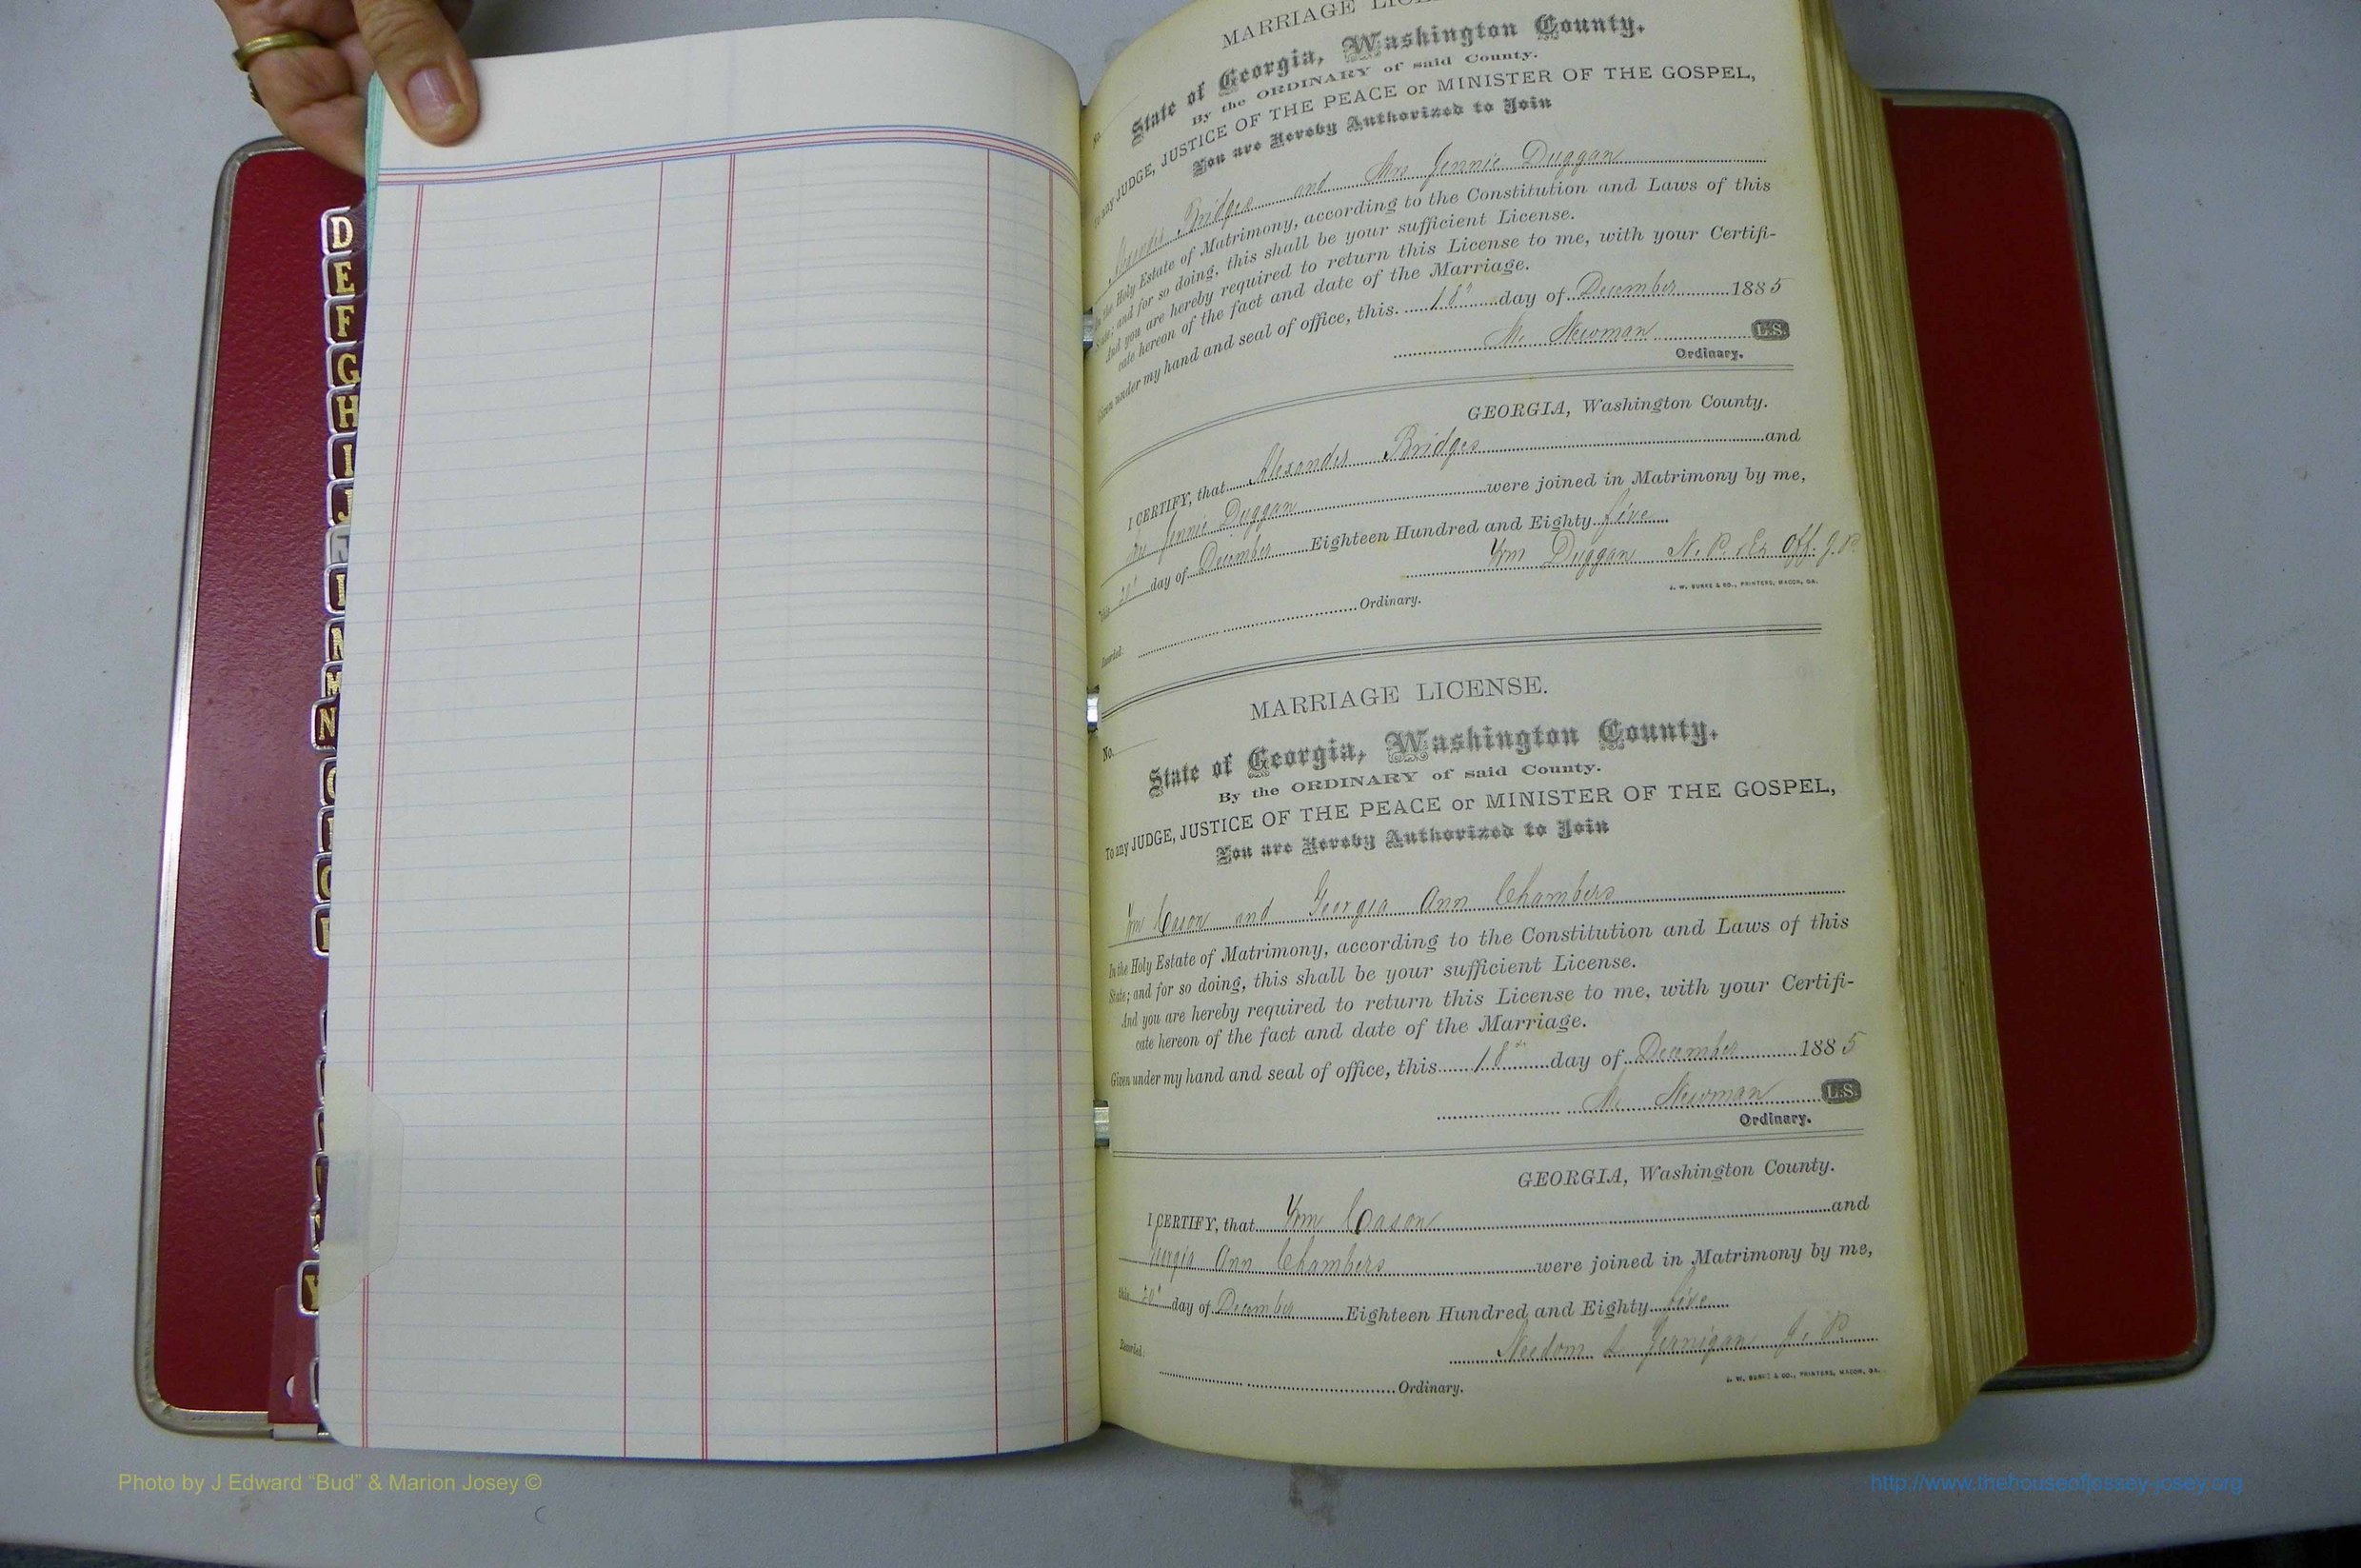 D
E
F
G
H
I
J
M
N
MARRIAGE
State of Georgia, Washington County.
By the ORDINARY of said County.
To any JUDGE, JUSTICE OF THE PEACE or MINISTER OF THE GOSPEL,
You are Hereby Authorized to Join
Bridges and Mrs Jennie Duggan
In the Holy Estate of Matrimony, according to the Constitution and Laws of this
State; and for so doing, this shall be your sufficient License.
And you are hereby required to return this License to me, with your Certifi-
cate hereon of the fact and date of the Marriage.
Given under my hand and seal of office, this 18" day of December 1885
M. Newman L.S.
Ordinary.
GEORGIA, Washington County.
I CERTIFY, that Alexander Bridges and
Jennie Duggan were joined in Matrimony by me,
This 20" day of December Eighteen Hundred and Eighty five
Wm Duggan N. P. & Ex Off. J. P.
J. W. BURKE & CO., PRINTERS, MACON, GA.
Recorded Ordinary.
MARRIAGE LICENSE.
No.
State of Georgia, Washington County.
By the ORDINARY of said County.
To any JUDGE, JUSTICE OF THE PEACE or MINISTER OF THE GOSPEL,
You are Hereby Authorized to Join
Wm Cason and Georgia Ann Chambers
In the Holy Estate of Matrimony, according to the Constitution and Laws of this
State; and for so doing, this shall be your sufficient License.
And you are hereby required to return this License to me, with your Certifi-
cate hereon of the fact and date of the Marriage.
Given under my hand and seal of office, this 18" day of December 1885
M. Newman L.S.
Ordinary.
GEORGIA, Washington County.
I CERTIFY, that Wm Cason and
Georgia Ann Chambers were joined in Matrimony by me,
this 20" day of December Eighteen Hundred and Eighty five
Needom L Jernigan J. P.
Recorded Ordinary.
J. W. BURKE & CO., PRINTERS, MACON, GA.
Photo by J Edward "Bud" & Marion Josey ©
http://www.thehouseofjossey-josey.org